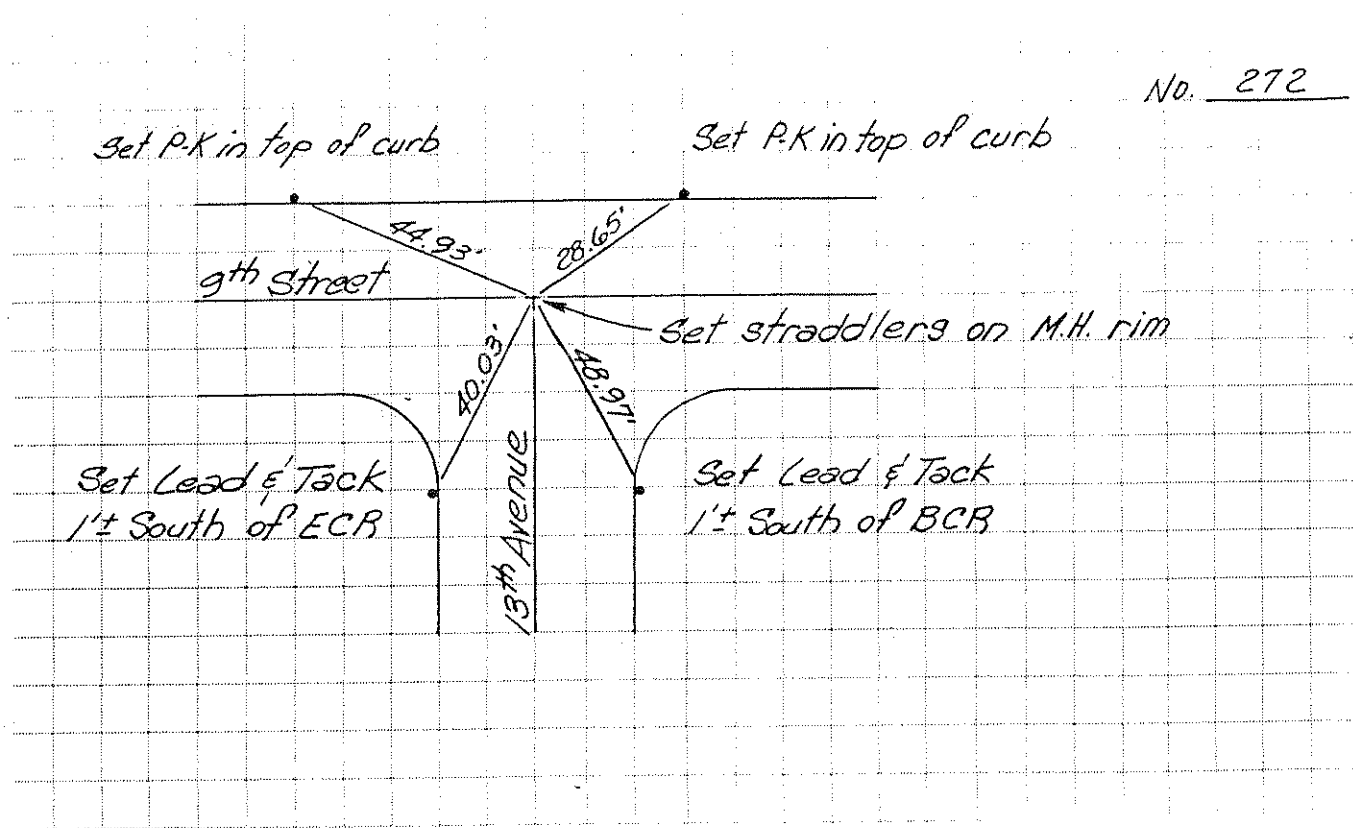 No. 272
Set P-K in top of curb
Set P-K in top of curb
44.93'
28.65'
9th Street
Set straddlers on M.H. rim
40.03'
48.97'
13th Avenue
Set Lead & Tack
1'± South of ECR
Set Lead & Tack
1'± South of BCR